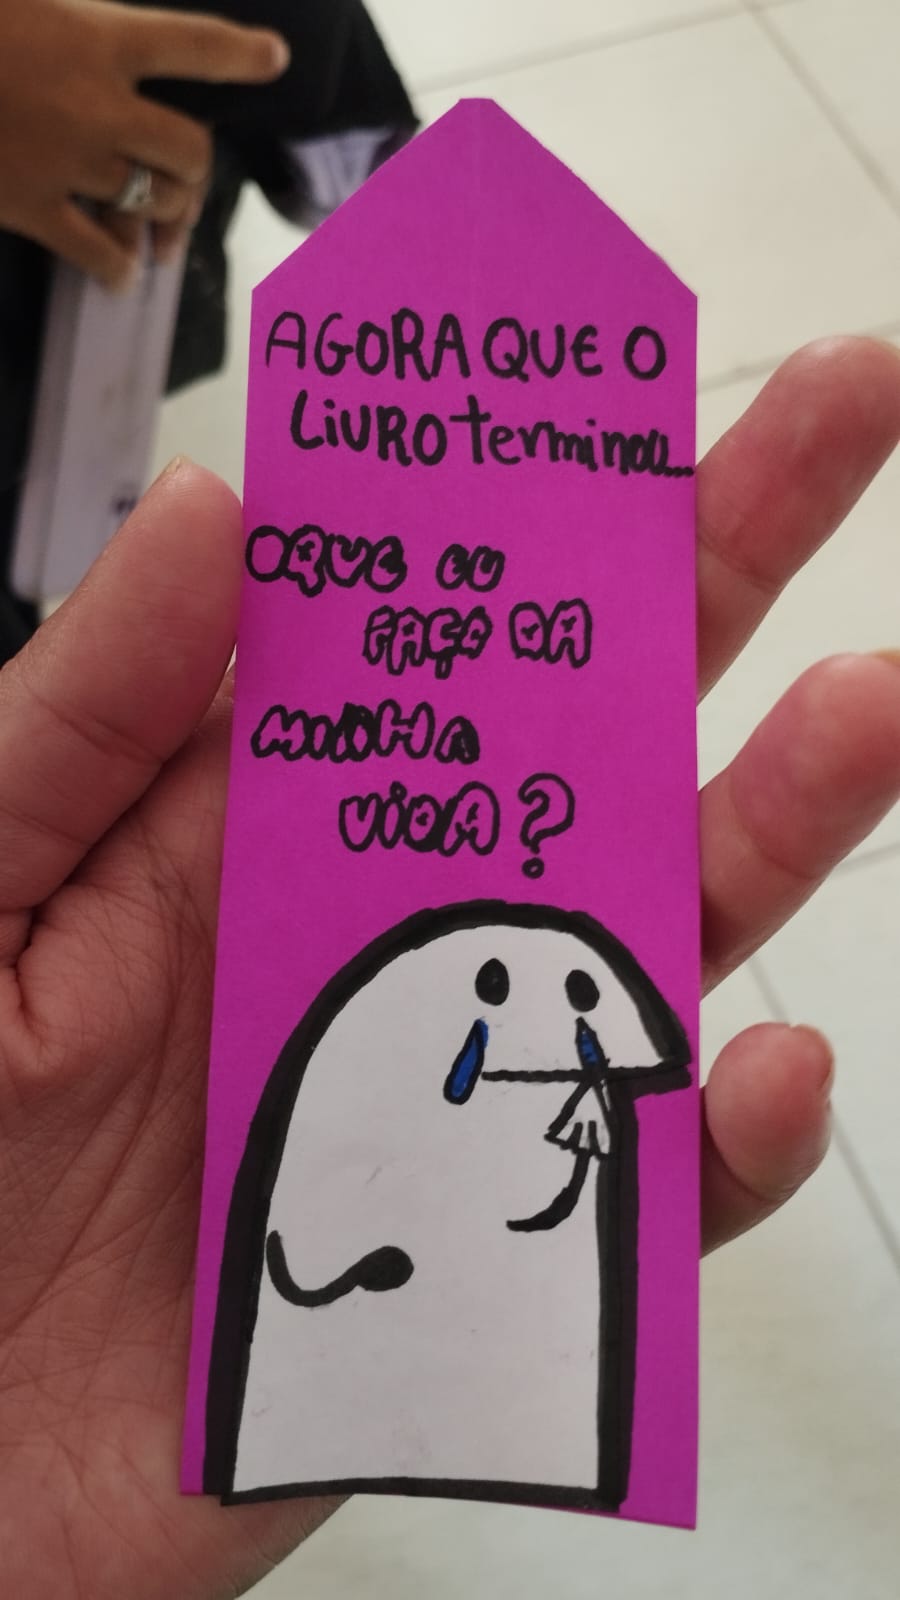 AGORA QUE O
LiVRO terminou...
OQUE EU
FAÇO DA
MINHA
ViDA?